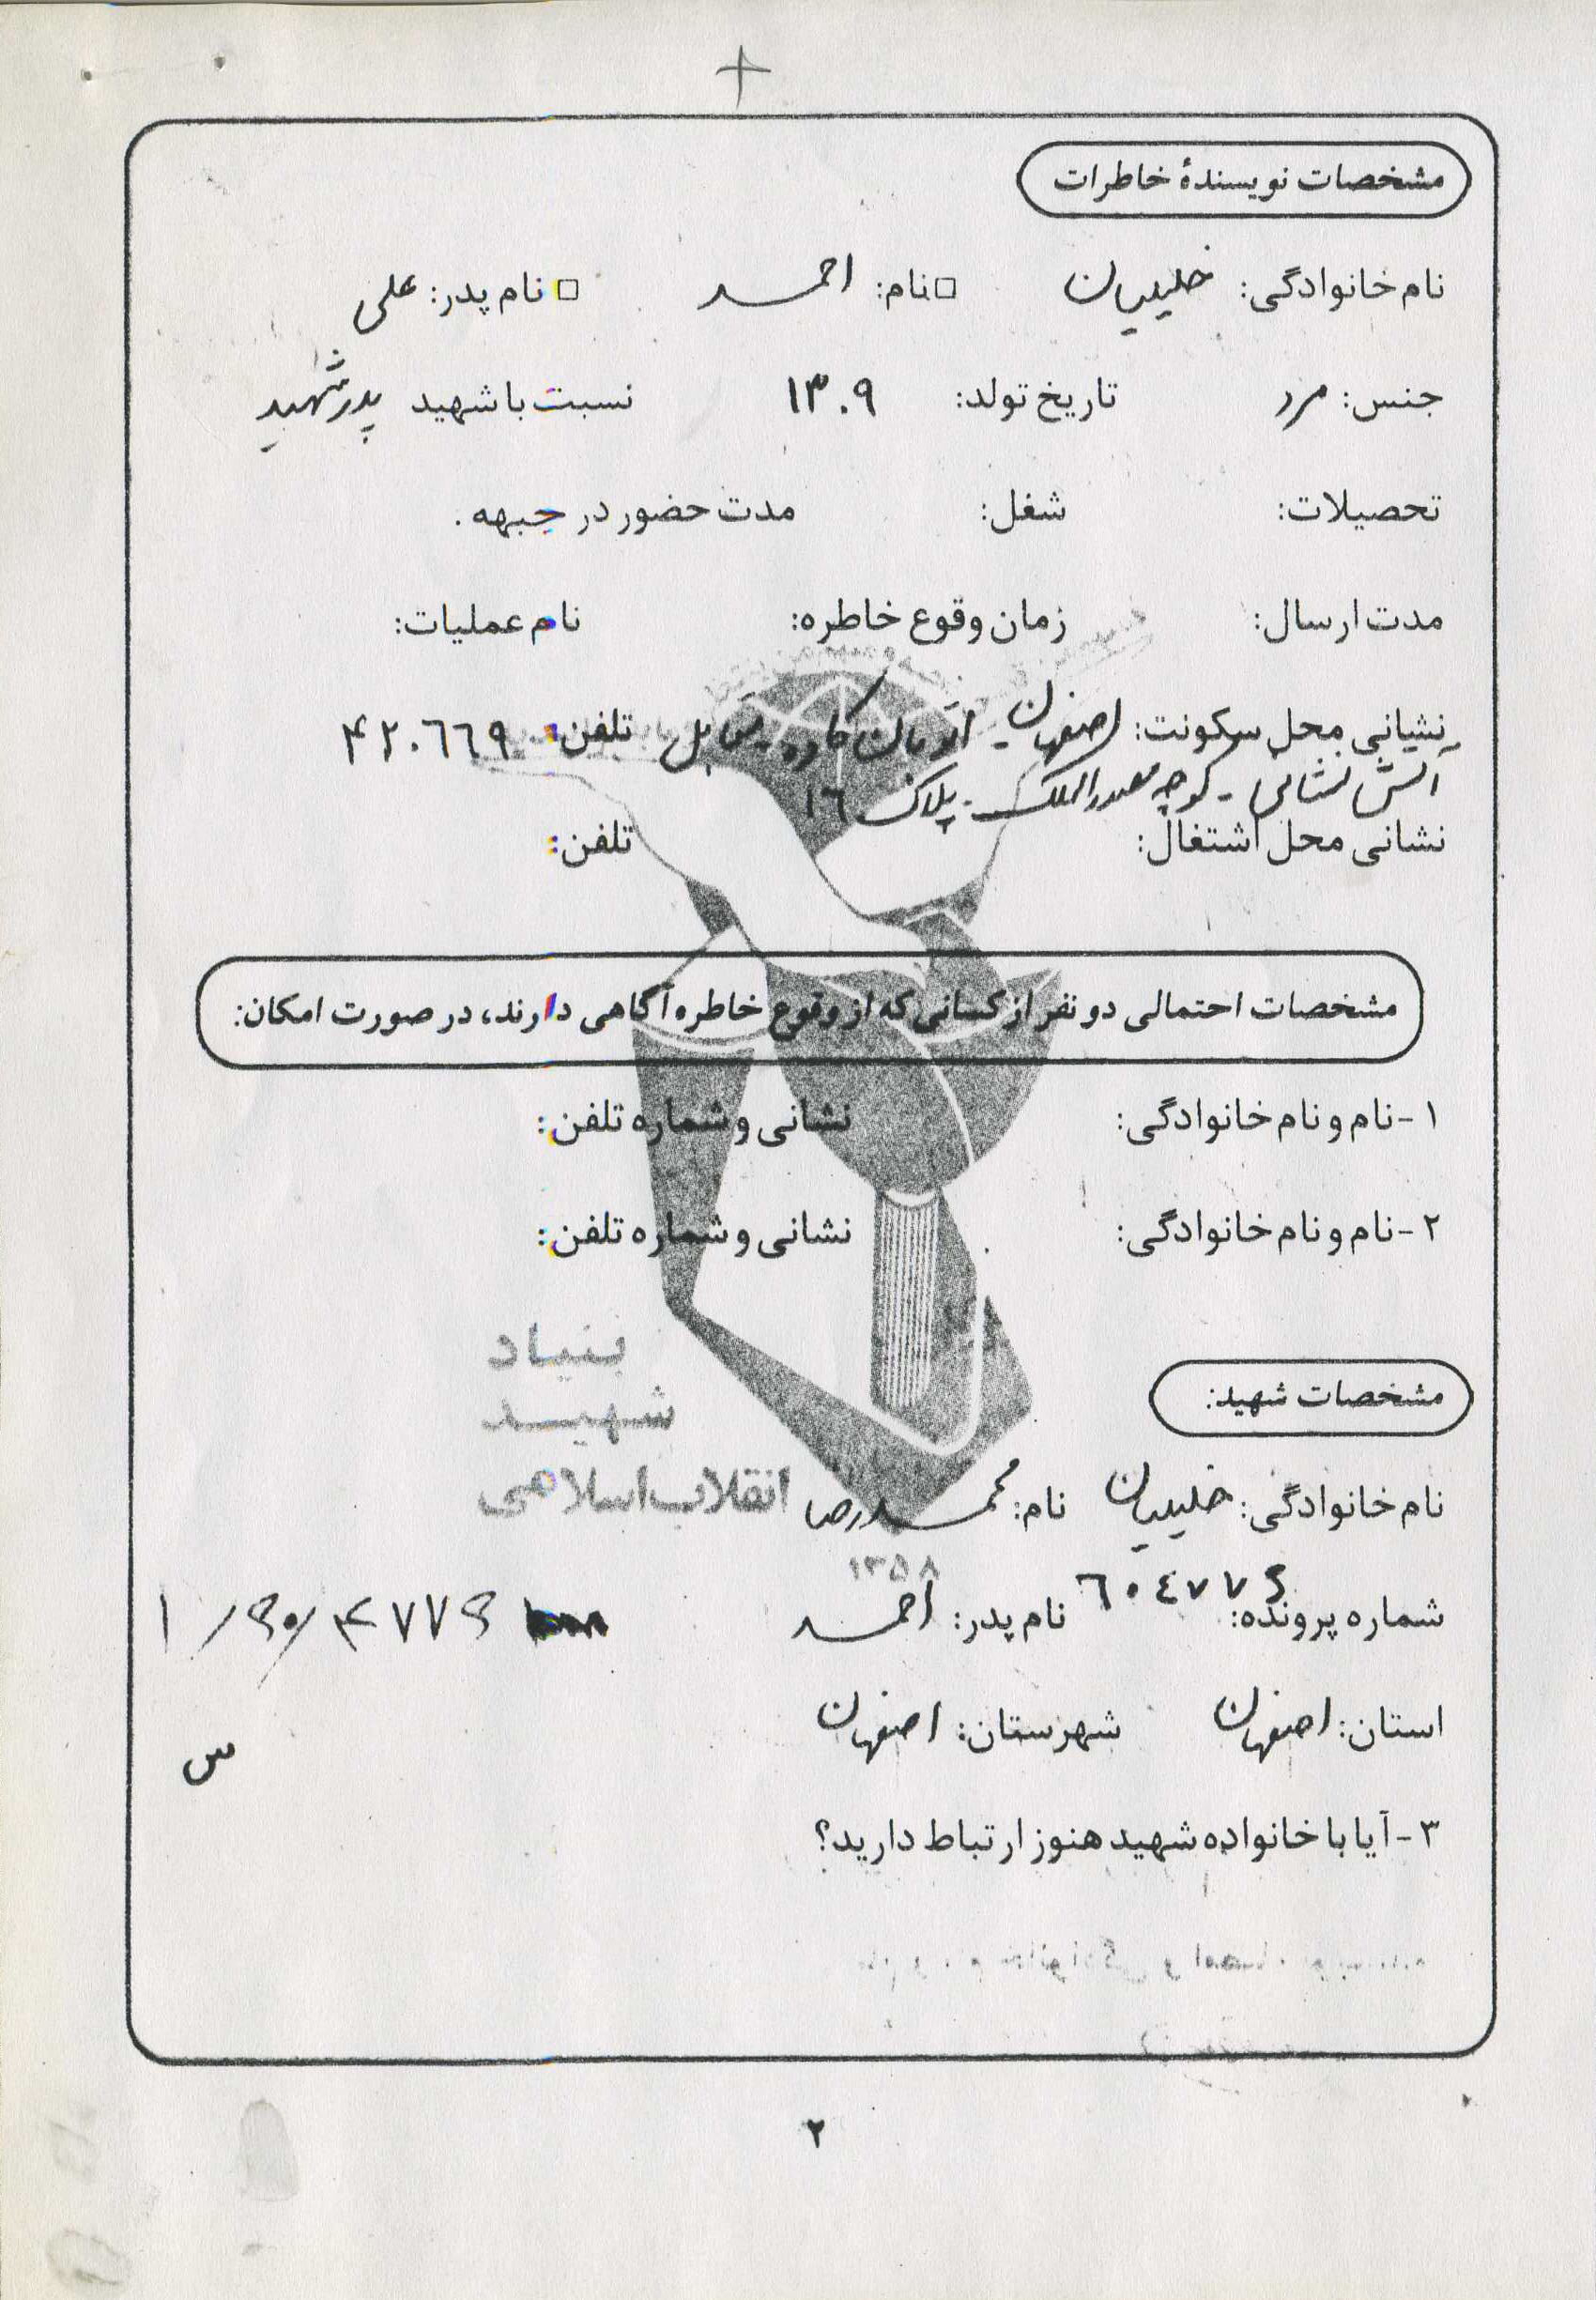 مشخصات نویسندهٔ خاطرات
نام خانوادگی: خلیلیان □نام: احمد □ نام پدر: علی
جنس: مرد تاریخ تولد: ۱۳۰۹ نسبت با شهید پدر شهید
تحصیلات: شغل: مدت حضور در جبهه.
مدت ارسال: زمان وقوع خاطره: نام عملیات:
نشیانی محل سکونت: اصفهان - اتوبان کاوه - مقابل تلفن: ۴۲۰۶۶۹
آتش نشانی - کوچه صدرالملک - پلاک ۱۶
نشانی محل اشتغال: تلفن:
مشخصات احتمالی دو نفر از کسانی که از وقوع خاطره آگاهی دارند، در صورت امکان:
۱- نام و نام خانوادگی: نشانی و شماره تلفن:
۲- نام و نام خانوادگی: نشانی و شماره تلفن:
بنیاد
شهید
انقلاب اسلامی
۱۳۵۸
مشخصات شهید:
نام خانوادگی: خلیلیان نام: محمدرضا
شماره پرونده: ۶۰۴۷۷۶ نام پدر: احمد ۱/۶۰/۴۷۷۶
استان: اصفهان شهرستان: اصفهان
س
۳- آیا با خانواده شهید هنوز ارتباط دارید؟
۲